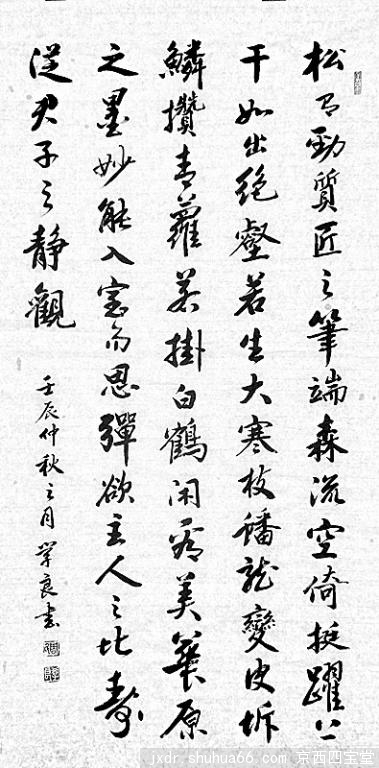 松有勁質匠之筆端森流空倚挺躍上
干如出絕壑若生大寒枝蟠龍變皮坼
鱗攢青蘿若掛白鶴閑看美華原
之墨妙能入室而思彈欲主人之比壽
從君子之靜觀
壬辰仲秋之月學良書
jxdr.shuhua66.com 京西四宝堂